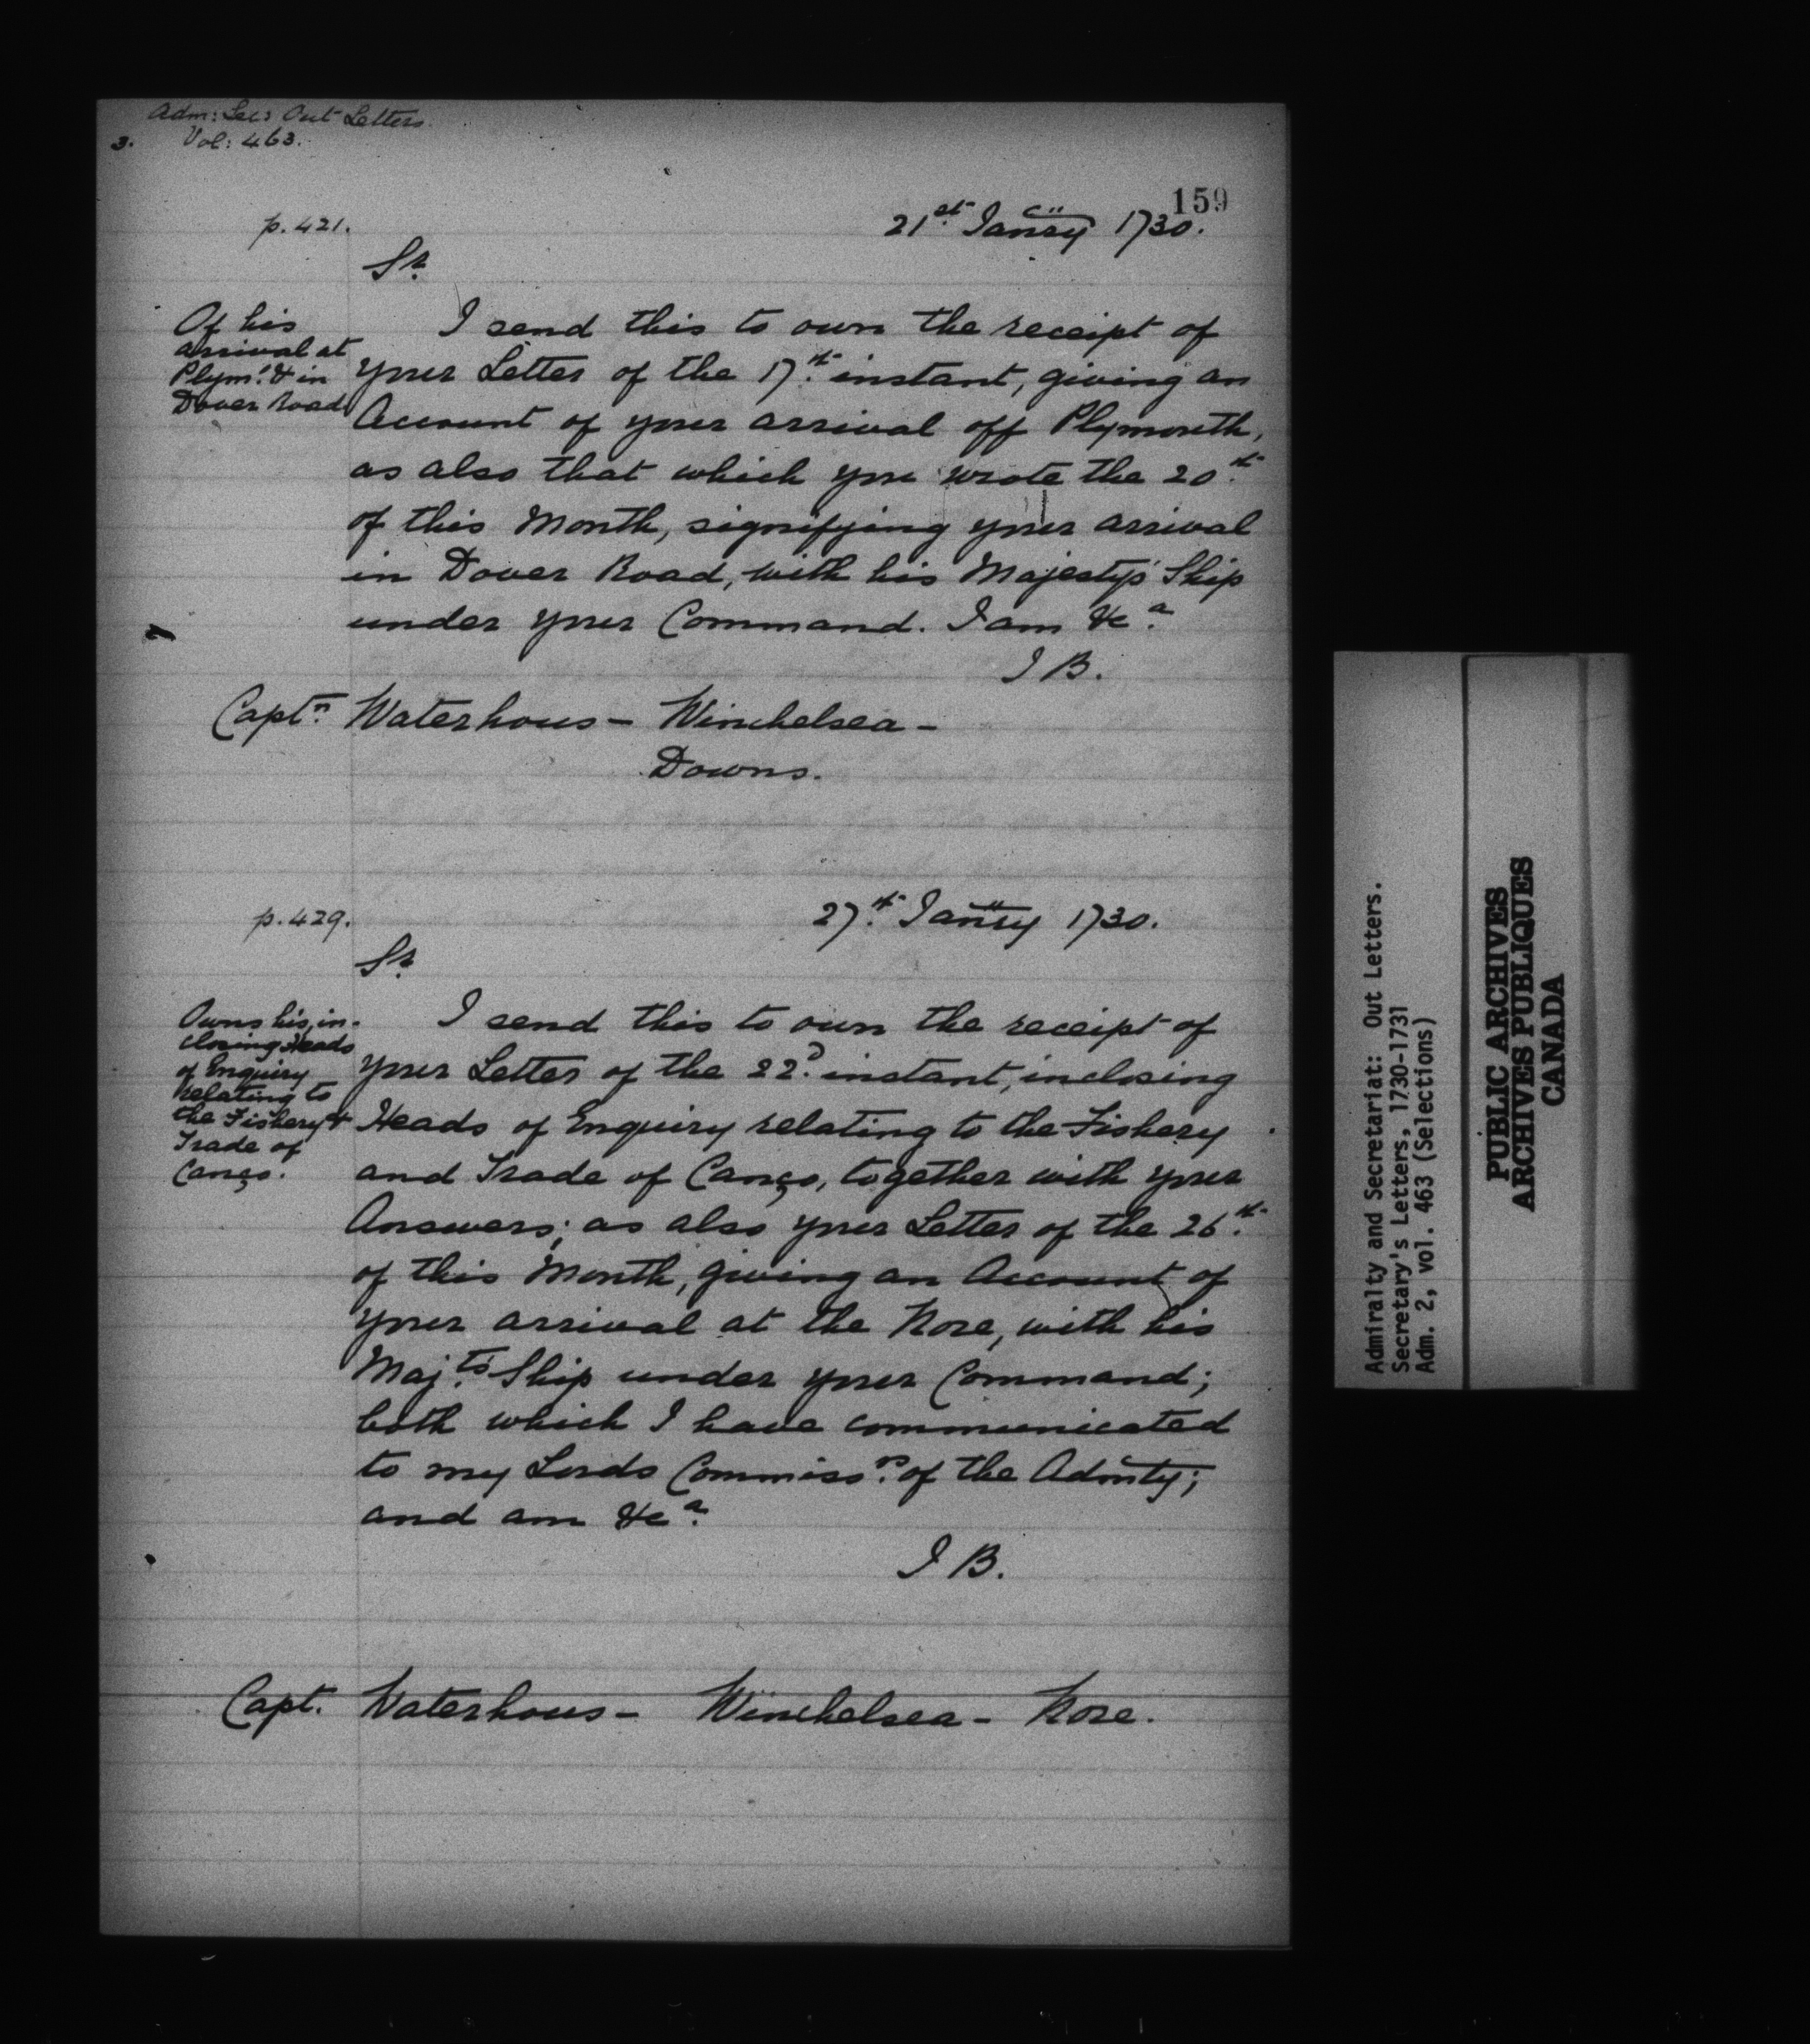 Adm: Sec: Out Letters.
3. Vol: 463.
159
p. 421.
21st. Janry 1730.
Sr.
Of his
arrival at
Plymo. & in
Dover Road
I send this to own the receipt of
your Letter of the 17th. instant, giving an
Account of your arrival off Plymouth,
as also that which you wrote the 20th.
of this Month, signifying your arrival
in Dover Road, with his Majesty's Ship
under your Command. I am &ca.
J B.
Captn. Waterhous - Winchelsea -
Downs.
p. 429.
27th. Janry 1730.
Sr.
Owns his, in-
closing Heads
of Enquiry
relating to
the Fishery &
Trade of
Canço.
I send this to own the receipt of
your Letter of the 22d. instant, inclosing
Heads of Enquiry relating to the Fishery
and Trade of Canço, together with your
Answers; as also your Letter of the 26th.
of this Month, giving an Account of
your arrival at the Nore, with his
Maj.ts Ship under your Command;
both which I have communicated
to my Lords Commissrs. of the Admty;
and am &ca.
J B.
Capt. Waterhous - Winchelsea - Nore.
Admiralty and Secretariat: Out Letters.
Secretary's Letters, 1730-1731
Adm. 2, vol. 463 (Selections)
PUBLIC ARCHIVES
ARCHIVES PUBLIQUES
CANADA